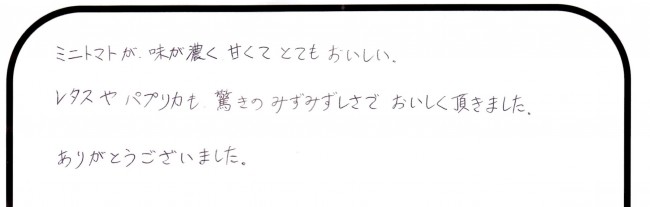 ミニトマトが、味が濃く 甘くて とても おいしい。
レタスや パプリカも、驚きの みずみずしさで おいしく 頂きました。
ありがとうございました。